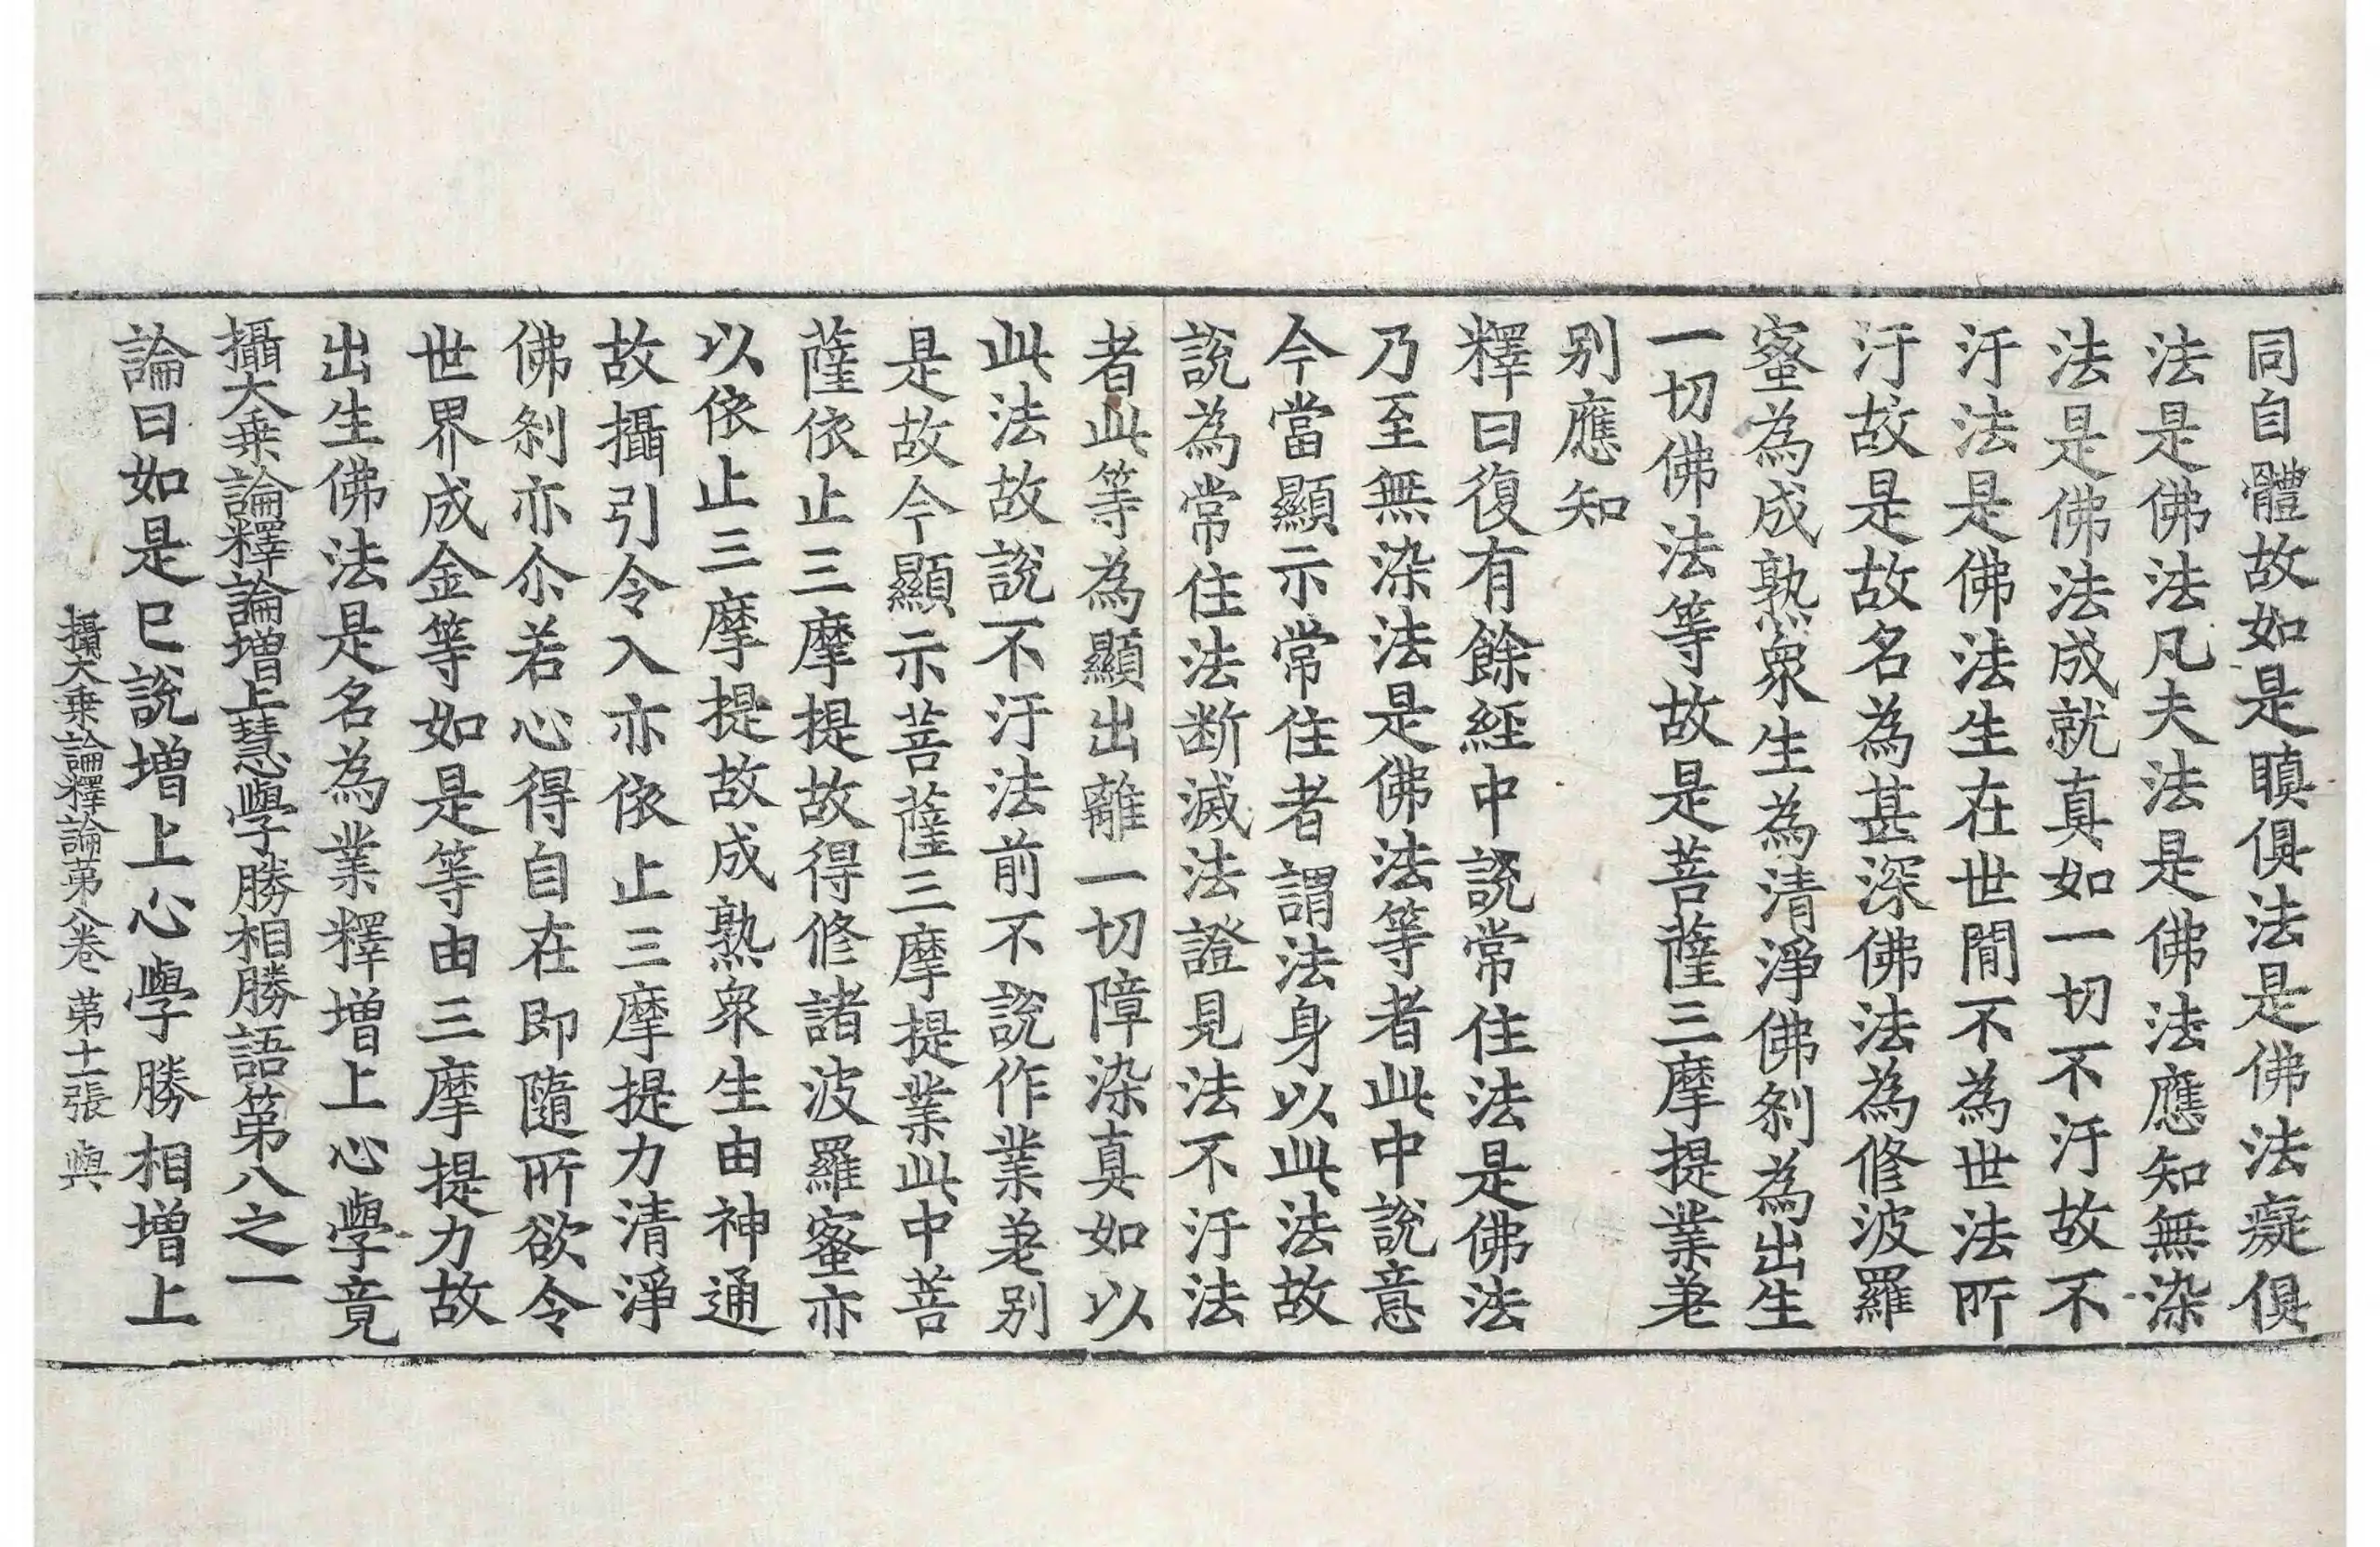 同自體故如是瞋俱法是佛法癡俱
法是佛法凡夫法是佛法應知無染
法是佛法成就真如一切不汙故不
汙法是佛法生在世間不為世法所
汙故是故名為甚深佛法為修波羅
蜜為成熟衆生為清淨佛刹為出生
一切佛法等故是菩薩三摩提業差
别應知
釋曰復有餘經中說常住法是佛法
乃至無染法是佛法等者此中說意
今當顯示常住者謂法身以此法故
說為常住法断滅法證見法不汙法
者此等為顯出離一切障染真如以
此法故說不汙法前不說作業差别
是故今顯示菩薩三摩提業此中菩
薩依止三摩提故得修諸波羅蜜亦
以依止三摩提故成熟衆生由神通
故攝引令入亦依止三摩提力清淨
佛刹亦尒若心得自在即隨所欲令
世界成金等如是等由三摩提力故
出生佛法是名為業釋增上心學竟
攝大乘論釋論增上慧學勝相勝語第八之一
論曰如是已說增上心學勝相增上
攝大乘論釋論第八卷 第十二張 輿